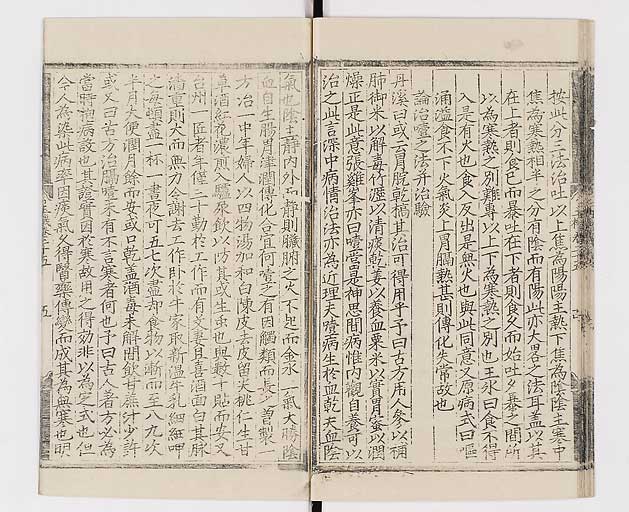 按此分三法治吐以上焦為陽陽主熱下焦為陰陰主寒中
焦為寒熱相半之分有陰而有陽此亦大畧之法耳盖以其
在上者則食已而暴吐在下者則食久而始吐夕暴之間所
以為寒熱之別難專以上下為寒熱之別也王氷曰食不得
入是有火也食入反出是無火也與此同意又原病式曰嘔
涌溢食不下火氣炎上胃膈熱甚則傳化失常故也
論治噎之法并治驗
丹溪曰或云胃脘乾槁其治可得用乎予曰古方用人參以補
肺御米以解毒竹瀝以清痰乾姜以養血粟米以實胃蜜以潤
燥正是此意張雞峯亦曰噎當是神思間病惟内觀自養可以
治之此言深中病情治法亦為近理夫噎病生於血乾夫血陰
氣也陰主靜内外兩靜則臟腑之火不起而金水二氣大勝陰
血自生腸胃津潤傳化合宜何噎之有因觸類而長之曽製一
方治一中年婦人以四物湯加和白陳皮去皮留尖桃仁生甘
草酒紅花濃煎入驢尿飲以防其或生虫也與數十貼而安又
台州一匠者年僅三十勤於工作而有艾妻且喜酒面白其脉
濇重則大而無力令謝去工作卧於牛家取新温牛乳細細呷
之每頓盡一杯一晝夜可五七次盡却食物以漸而至八九次
半月大便潤月餘而安或口乾盖酒毒未解間飲甘蔗汁少許
或又曰古方治膈噎未有不言寒者何也予曰古人著方必為
當時抱病設也其證實因於寒故用之得効非以為定式也但
今人為染此病率因痰氣久得醫藥傳變而成其為無寒也明